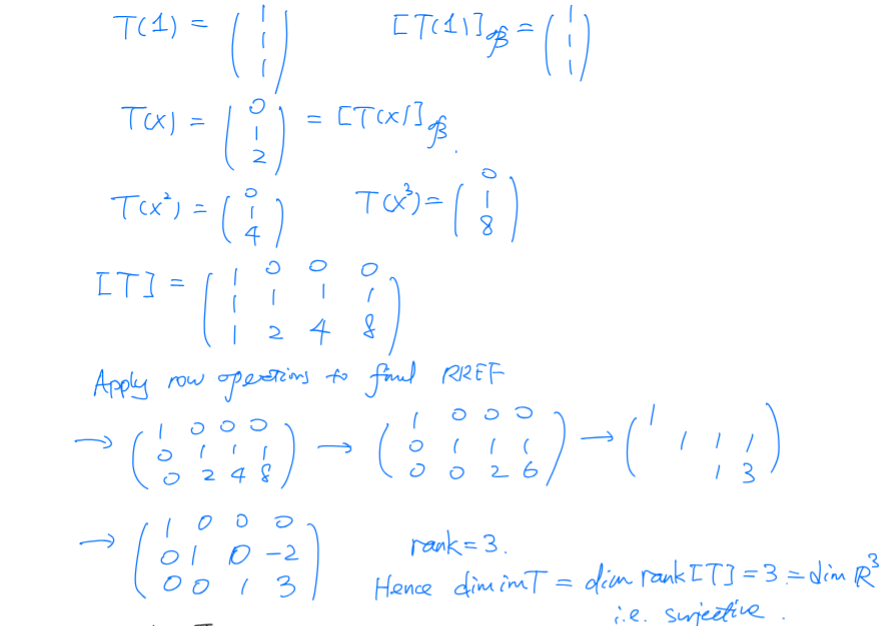 T(1) = (1 1 1) [T(1)]_β = (1 1 1)
T(x) = (0 1 2) = [T(x)]_β.
T(x²) = (0 1 4) T(x³) = (0 1 8)
[T] = (1 0 0 0
1 1 1 1
1 2 4 8)
Apply row operations to find RREF
→ (1 0 0 0 → (1 0 0 0 → (1
0 1 1 1 0 1 1 1 1 1 1
0 2 4 8) 0 0 2 6) 1 3)
→ (1 0 0 0
0 1 0 -2 rank = 3.
0 0 1 3) Hence dim im T = dim rank [T] = 3 = dim ℝ³
i.e. surjective.